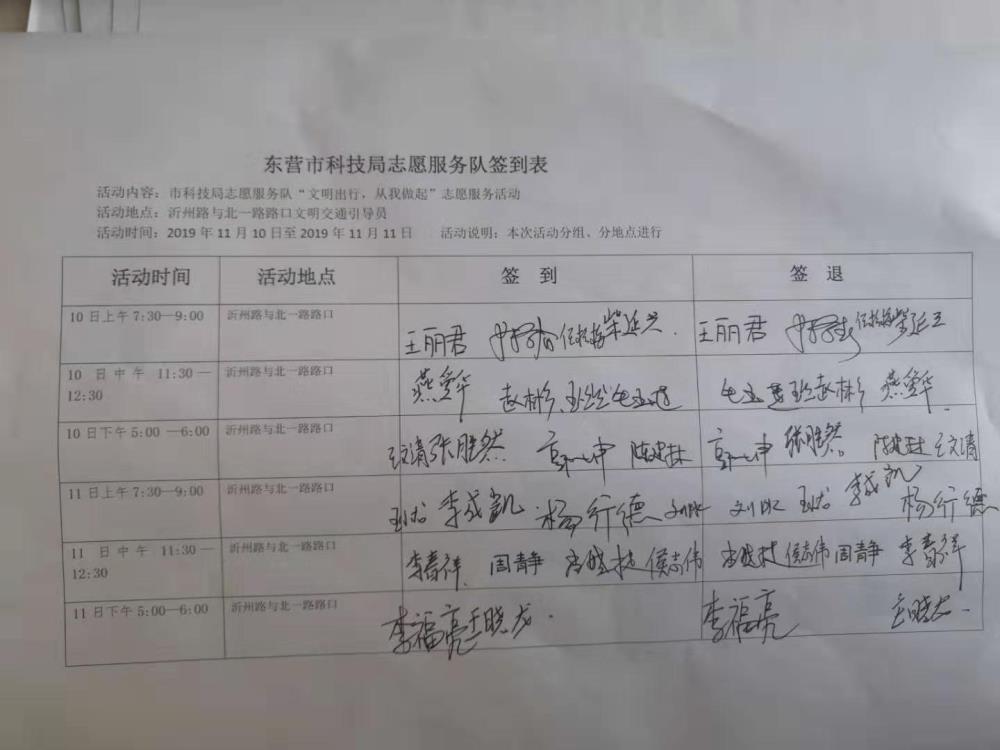 东营市科技局志愿服务队签到表
活动内容：市科技局志愿服务队“文明出行，从我做起”志愿服务活动
活动地点：沂州路与北一路路口文明交通引导员
活动时间：2019 年 11 月 10 日至 2019 年 11 月 11 日 活动说明：本次活动分组、分地点进行
活动时间 活动地点 签 到 签 退
10 日上午 7:30—9:00 沂州路与北一路路口 王丽君 王丽君
10 日中午 11:30—
12:30 沂州路与北一路路口 燕奎华 赵彬彬 赵彬彬 燕奎华
10 日下午 5:00 —6:00 沂州路与北一路路口 王文清 张胜然 陈建林 张胜然 陈建林 王文清
11 日上午 7:30—9:00 沂州路与北一路路口 李成凯 杨行德 李成凯 杨行德
11 日中午 11:30—
12:30 沂州路与北一路路口 李春祥 周静 侯志伟 侯志伟 周静 李春祥
11 日下午 5:00—6:00 沂州路与北一路路口 李福亮 王晓龙 李福亮 王晓龙